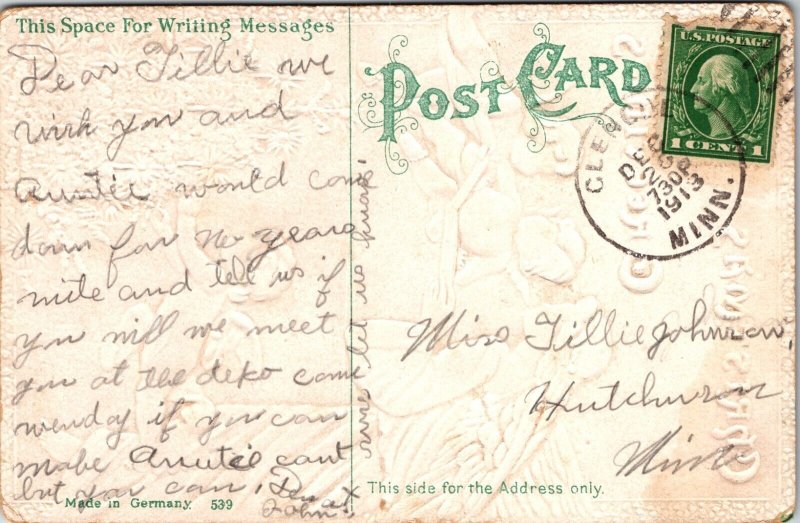 This Space For Writing Messages
Dear Tillie we
wish you and
Auntie would come
down for No years
nite and tell us if
you will we meet
you at the deko come
wensday if you can
make Auntie cant
but you can,
sure let us know
Made in Germany. 539
POST CARD
U.S. POSTAGE
1 CENT 1
DEC
730P
1913
MINN.
Miss Tillie Johnson,
Hutchinson
Minn
This side for the Address only.